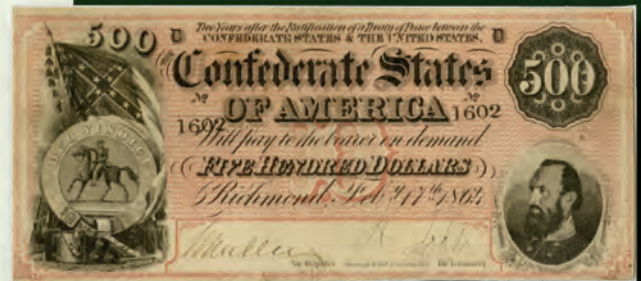 Two Years after the Ratification of a Treaty of Peace between the
500 D CONFEDERATE STATES & THE UNITED STATES, D
Confederate States 500
No No
OF AMERICA 1602
1602
Will pay to the bearer on demand
DEO VINDICE
FIVE HUNDRED DOLLARS
Richmond, Feby. 17th 1864
for Register for Treasurer